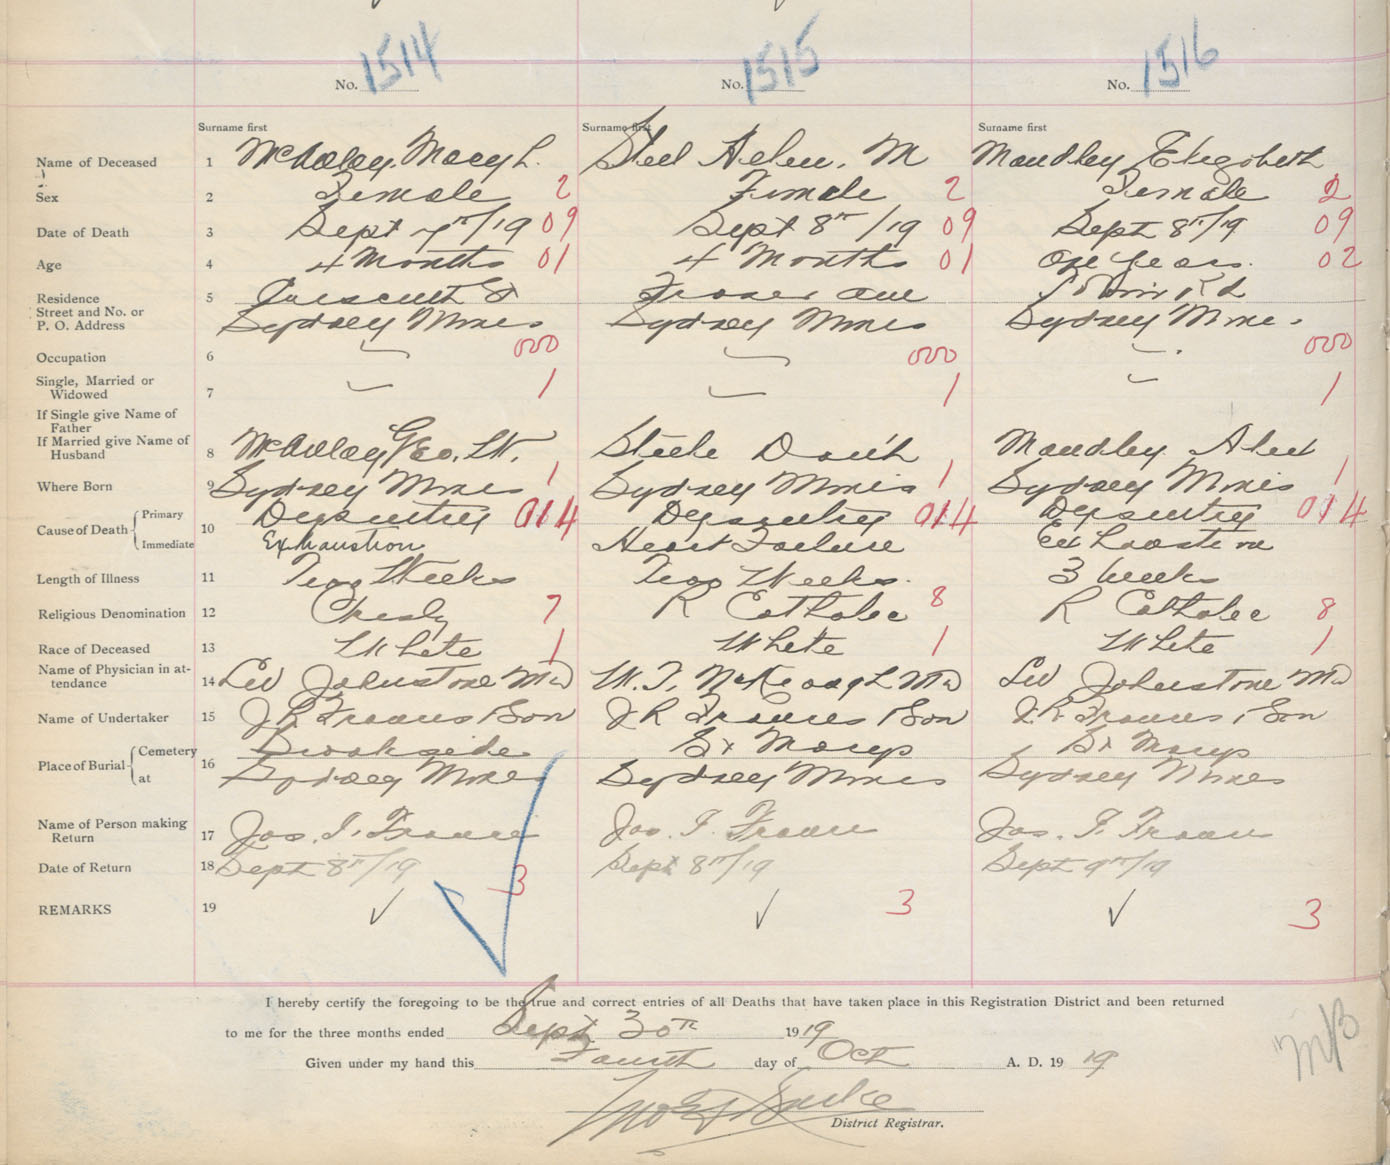 No. 1514 No. 1515 No. 1516
Surname first Surname first Surname first
Name of Deceased 1 McAulay, Mary L. Steel Helen. M Maudley Elizabeth
Sex 2 Female 2 Female 2 Female 2
Date of Death 3 Sept 7th/19 09 Sept 8th/19 09 Sept 8th/19 09
Age 4 4 Months 01 4 Months 01 One Years. 02
Residence 5 Crescent St Fraser Ave Rd
Street and No. or
P. O. Address Sydney Mines Sydney Mines Sydney Mines
Occupation 6 000 000 000
Single, Married or
Widowed 7 1 1 1
If Single give Name of
Father
If Married give Name of
Husband 8 McAulay Geo. W. Steele Maudley
Where Born 9 Sydney Mines 1 Sydney Mines 1 Sydney Mines 1
Cause of Death Primary 10 Dysentry 014 Dysentry 014 Dysentry 014
Immediate Exhaustion Heart Failure Exhaustion
Length of Illness 11 Two Weeks Two Weeks. 3 weeks
Religious Denomination 12 Presby 7 R Catholic 8 R Catholic 8
Race of Deceased 13 White 1 White 1 White 1
Name of Physician in at-
tendance 14 LW Johnstone MD W. T. McKeough MD LW Johnstone MD
Name of Undertaker 15 J R Francis & Son J R Francis & Son J. R. Francis & Son
Place of Burial Cemetery 16 Brookside St Marys St Marys
at Sydney Mines Sydney Mines Sydney Mines
Name of Person making
Return 17 Jos. I. Francis Jos. I. Francis Jos. I. Francis
Date of Return 18 Sept 8th/19 Sept 8th/19 Sept 9th/19
3
REMARKS 19 ✓ ✓ 3 ✓ 3
I hereby certify the foregoing to be the true and correct entries of all Deaths that have taken place in this Registration District and been returned
to me for the three months ended Sept 30th 1919
Given under my hand this Fourth day of Oct A. D. 19 19
Burke
District Registrar.